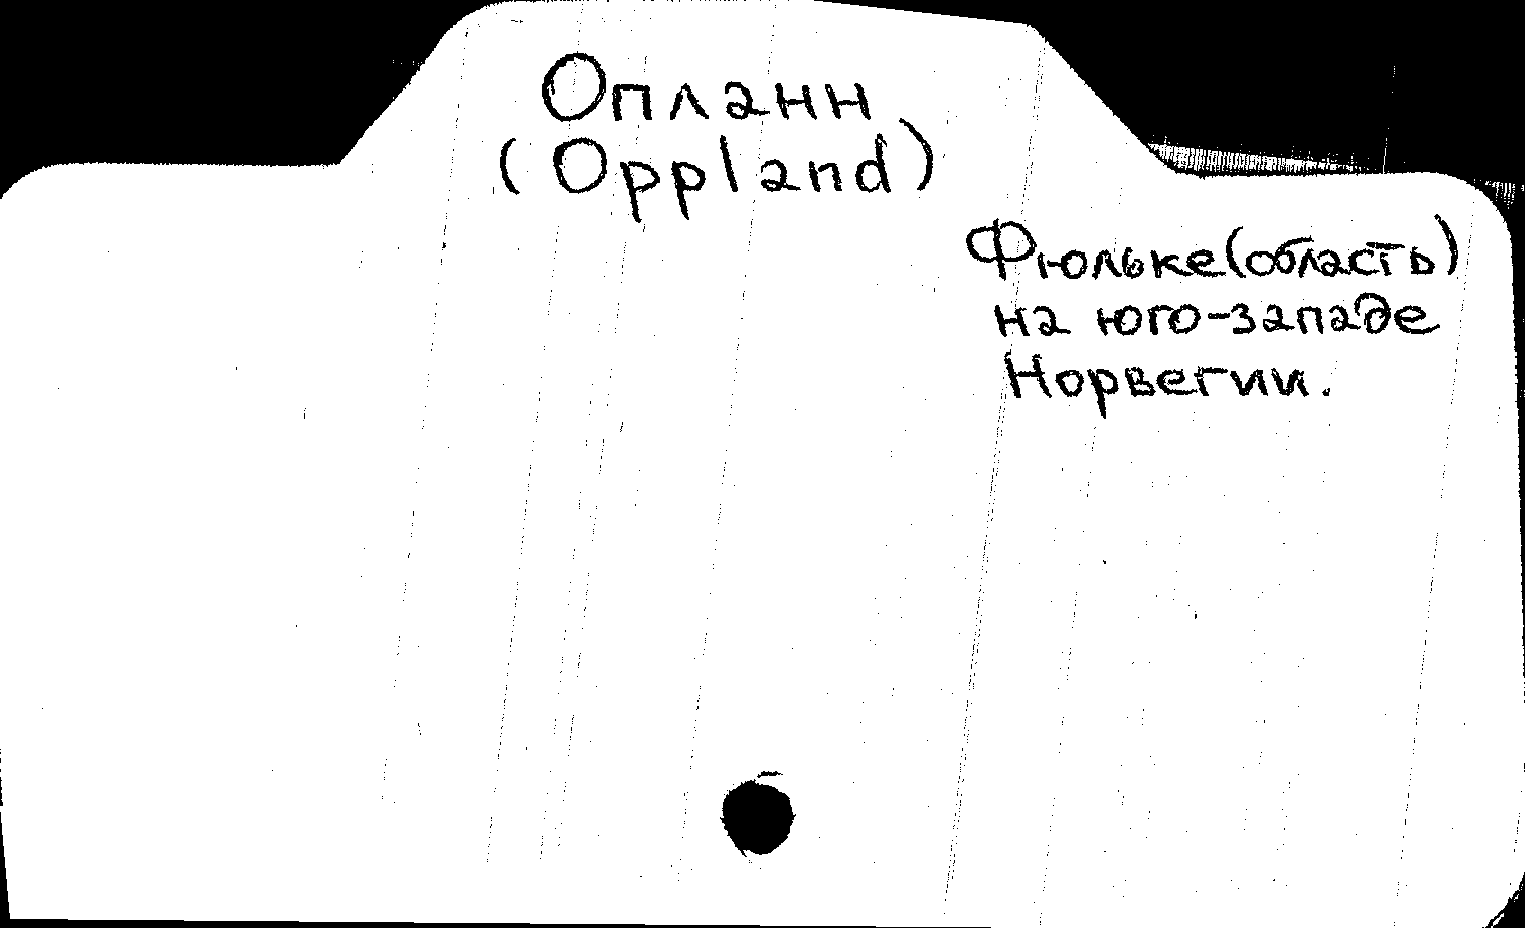 Опланн
(Oppland)
Фюльке(область)
на юго-западе
Норвегии.